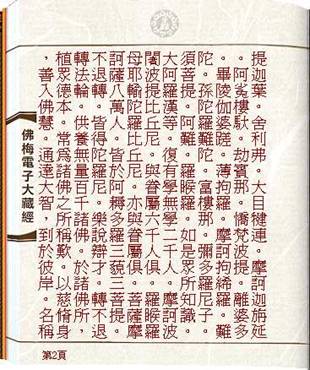 提迦葉。舍利弗。大目犍連。摩訶迦旃延
。阿㝹樓馱。劫賓那。憍梵波提。離婆多
。畢陵伽婆蹉。薄拘羅。摩訶拘絺羅。難
陀。孫陀羅難陀。富樓那。彌多羅尼子。
須菩提。阿難。羅睺羅。如是眾所知識。
大阿羅漢等。復有學無學二千人。摩訶波
闍波提比丘尼。與眷屬六千人俱。羅睺羅
母耶輸陀羅比丘尼。亦與眷屬俱。菩薩摩
訶薩八萬人。皆於阿耨多羅三藐三菩提。
不退轉。皆得陀羅尼。樂說辯才。轉不退
轉法輪。供養無量百千諸佛。於諸佛所，
植眾德本。常為諸佛之所稱歎。以慈脩身
，善入佛慧。通達大智，到於彼岸。名稱
佛梅電子大藏經
第2頁